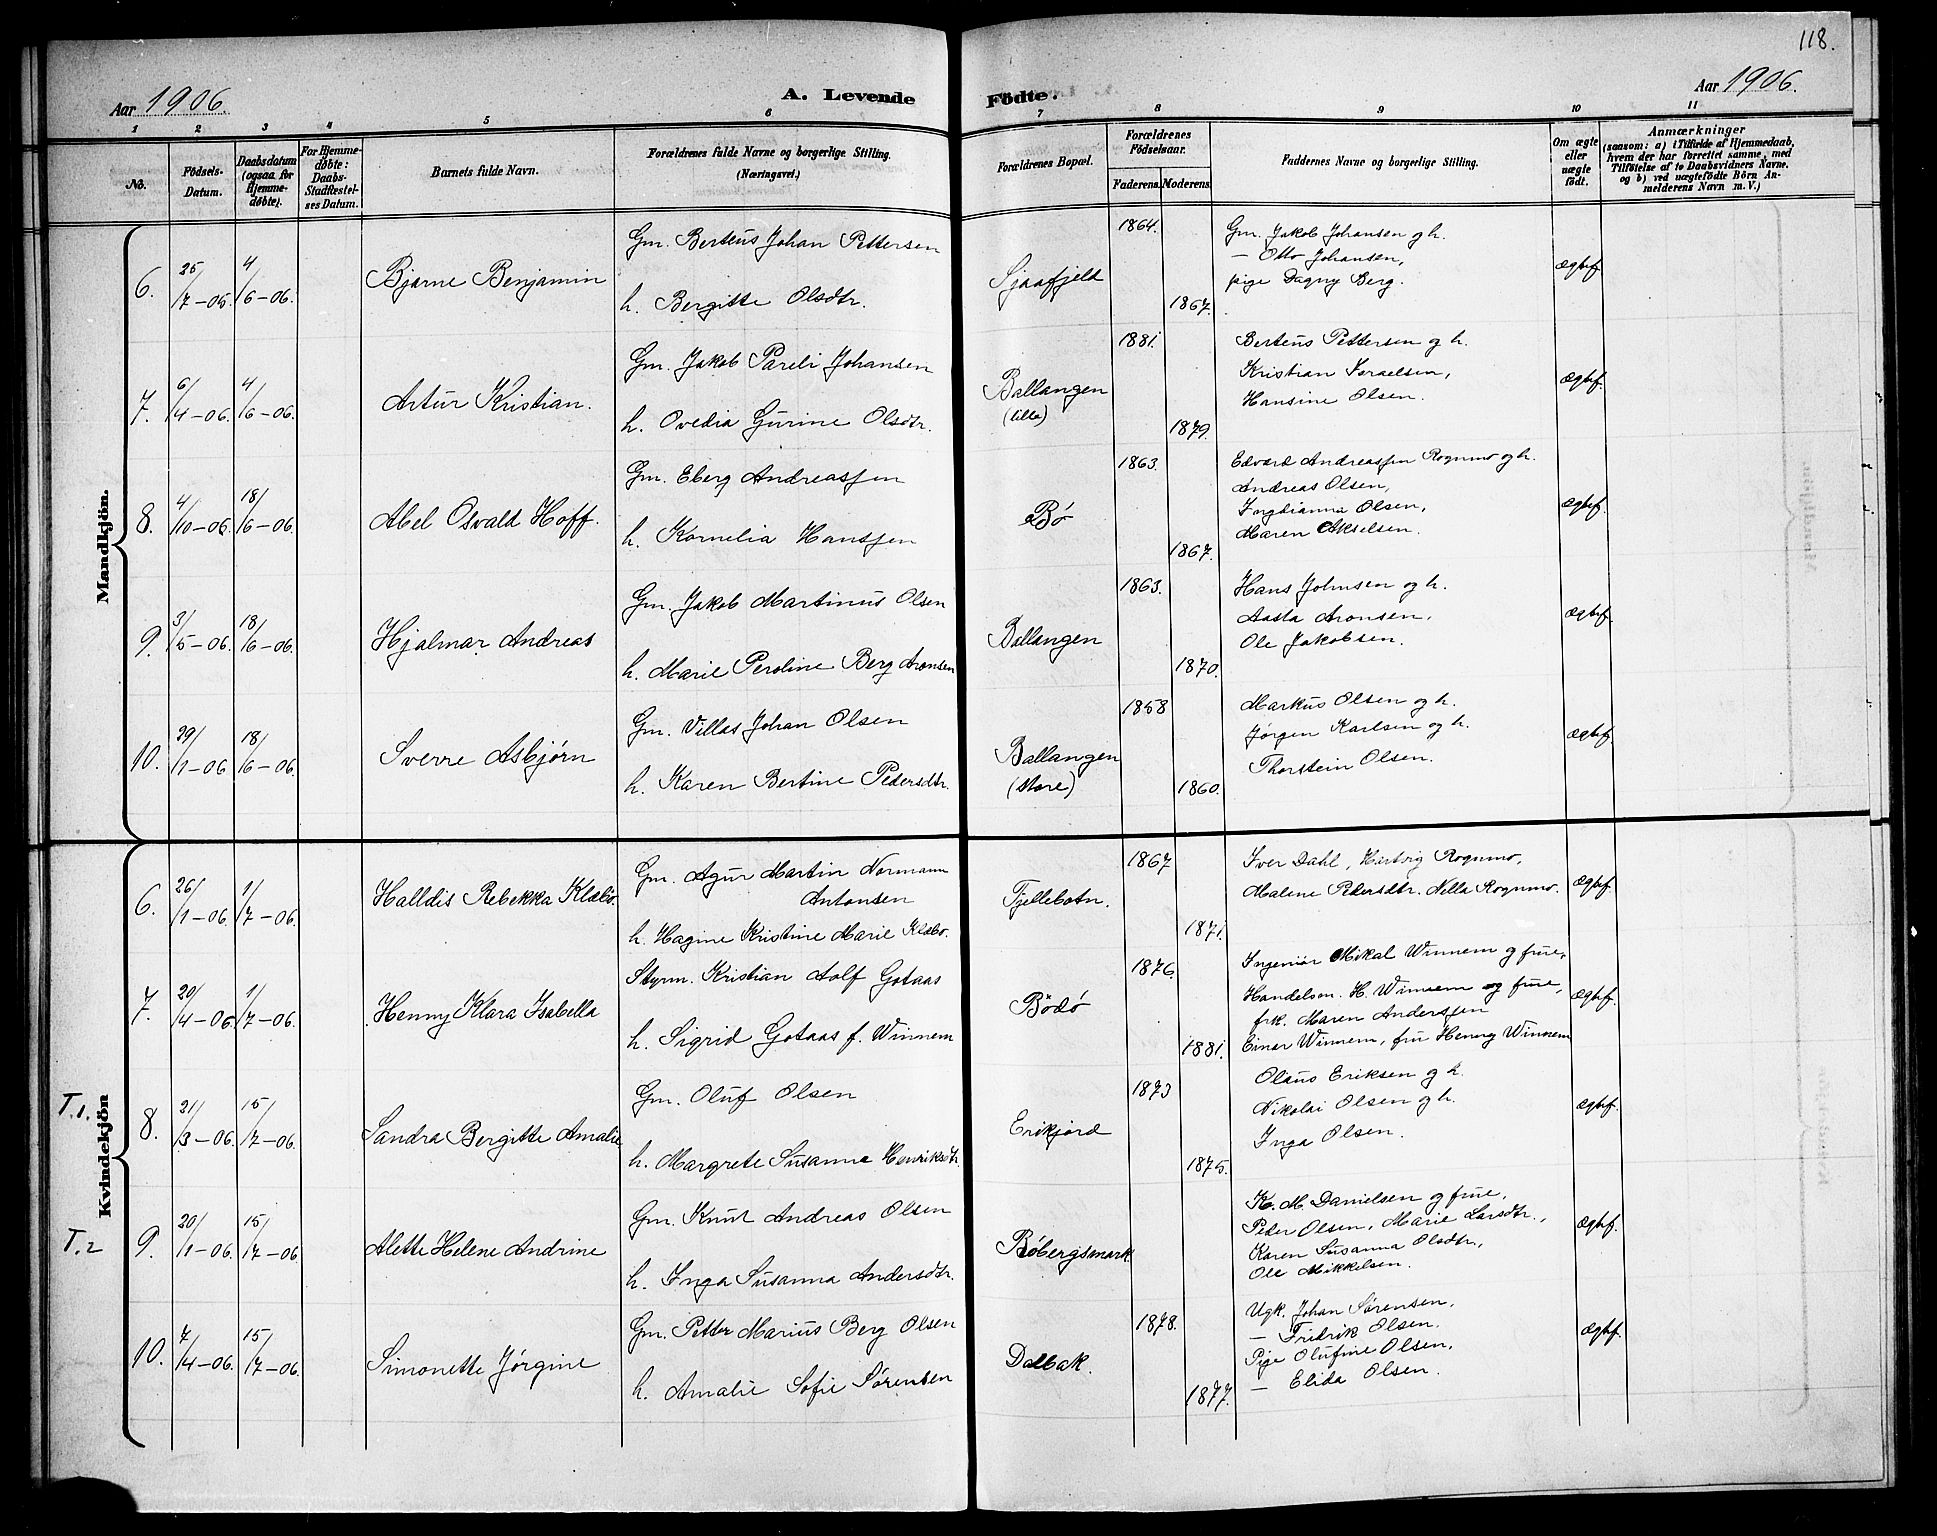 118.
Aar 1906.
A. Levende Födte.
Aar 1906.
1 2 3 4 5 6 7 8 9 10 11
No.
Födsels-Datum.
Daabsdatum (ogsaa for Hjemme-døbte).
For Hjemme-døbte: Daabs-Stadfæstel-ses Datum.
Barnets fulde Navn.
Forældrenes fulde Navne og borgerlige Stilling.
(Næringsvei.)
Forældrenes Bopæl.
Forældrenes Födselsaar.
Faderens. Moderens.
Faddernes Navne og borgerlige Stilling.
Om ægte eller uægte födt.
Anmærkninger
(saasom: a) i Tilfælde af Hjemmedaab, hvem der har forrettet samme, med Tilföielse af to Daabsvidners Navne. og b) ved uægtefödte Börn An-melderens Navn m. V.)
Mandkjön.
6. 25/7-05. 4/6-06. Bjarne Benjamin
Gm. Berteus Johan Pettersen
h. Bergitte Olsdtr.
Sjaafjeld
1864. 1867.
Gm. Jakob Johansen og h.
— Otto Johansen,
pige Dagny Berg.
ægtef.
7. 6/4-06. 4/6-06. Artur Kristian.
Gm. Jakob Pareli Johansen
h. Ovedia Gurine Olsdtr.
Ballangen
(lille)
1881. 1879.
Berteus Pettersen og h.
Kristian Israelsen,
Hansine Olsen.
ægtef.
8. 4/10-06. 18/6-06. Abel Osvald Hoff.
Gm. Eberg Andreassen
h. Kornelia Hanssen
Bø
1863. 1867.
Edvard Andreassen Rognmo og h.
Andreas Olsen,
Ingdianna Olsen,
Maren Akselsen.
ægtef.
9. 3/5-06. 18/6-06. Hjalmar Andreas
Gm. Jakob Martinus Olsen
h. Marie Peroline Berg Aronsen
Ballangen
1863. 1870.
Hans Johnsen og h.
Aasta Aronsen,
Ole Jakobsen.
ægtef.
10. 29/1-06 18/6-06. Sverre Asbjørn
Gm. Villas Johan Olsen
h. Karen Bertine Pedersdtr.
Ballangen
(Store)
1858 1860.
Markus Olsen og h.
Jørgen Karlsen og h.
Thorstein Olsen.
ægtef.
Kvindekjön
6. 26/1-06. 1/7-06. Halldis Rebekka Klæbo.
Gm. Agur Martin Normann
Antonsen
h. Hagine Kristine Marie Klæbo.
Fjellebotn.
1867 1871.
Iver Dahl, Hartvig Rognmo,
Malene Petersdtr. Nella Rognmo.
ægtef.
7. 20/4-06. 1/7-06. Henny Klara Isabella
Styrm. Kristian Adolf Gotaas
h. Sigrid Gotaas f. Winnem
Bodø
1876. 1881.
Ingeniør Mikal Winnem og frue,
Handelsm. H. Winnem og frue,
frk. Maren Anderssen
Einar Winnem, fru Henny Winnem
ægtef.
T.1. 8. 21/3-06. 15/7-06. Sandra Bergitte Amalie
Gm. Oluf Olsen
h. Margrete Susanna Henriksdtr.
Erikjord
1873 1875.
Olaus Eriksen og h.
Nikolai Olsen og h.
Inga Olsen.
ægtef.
T.2 9. 20/1-06. 15/7-06. Alette Helene Andrine
Gm. Knut Andreas Olsen
h. Inga Susanna Andersdtr.
Bøbergsmark
K. M. Danielsen og frue,
Peder Olsen, Marie Larsdtr.,
Karen Susanna Olsdtr,
Ole Mikkelsen.
ægtef.
10. 7/4-06. 15/7-06. Simonette Jørgine
Gm. Petter Marius Berg Olsen
h. Amalie Sofie Sørensen
Dalbak.
1878. 1877.
Ugk. Johan Sørensen,
— Fridrik Olsen.
Pige Olufine Olsen,
— Elida Olsen.
ægtef.